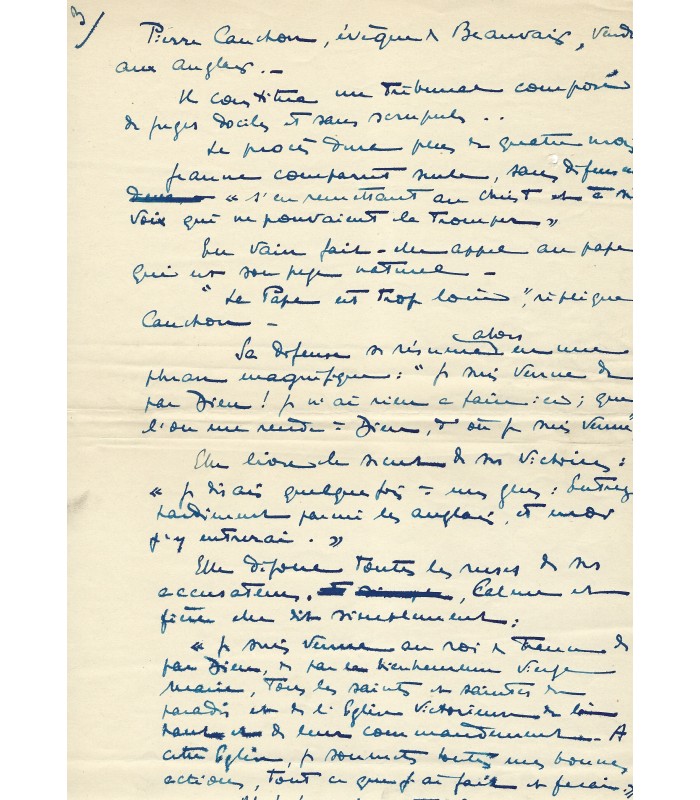 3/
Pierre Cauchon, évêque de Beauvais, vendu
aux anglais. -
Il constitue un Tribunal composé
de juges dociles et sans scrupules ..
Le procès dure plus de quatre mois
Jeanne comparait seule, sans défenseur
"s'en remettant au Christ et à ses
voix qui ne pouvaient la tromper"
En vain fait-elle appel au pape
qui est son juge naturel -
"Le Pape est trop loin", réplique
Cauchon -
Sa défense se résume alors en une
phrase magnifique : "Je suis venue de
par Dieu ! je n'ai rien à faire ici ; que
l'on me rende à Dieu, d'où je suis venue"
Elle livre le secret de ses victoires :
"je disais quelquefois à mes gens : Entrez
hardiment parmi les anglais, et moi
j'y entrerai."
Elle déjoue toutes les ruses de ses
accusateurs. Calme et
fière elle dit simplement :
"Je suis venue au roi de France de
par Dieu, de par la bienheureuse Vierge
Marie, tous les saints et saintes du
paradis et de l'Eglise victorieuse de là
haut et de leur commandement. A
cette Eglise, je soumets toutes mes bonnes
actions, tout ce que j'ai fait et ferai."